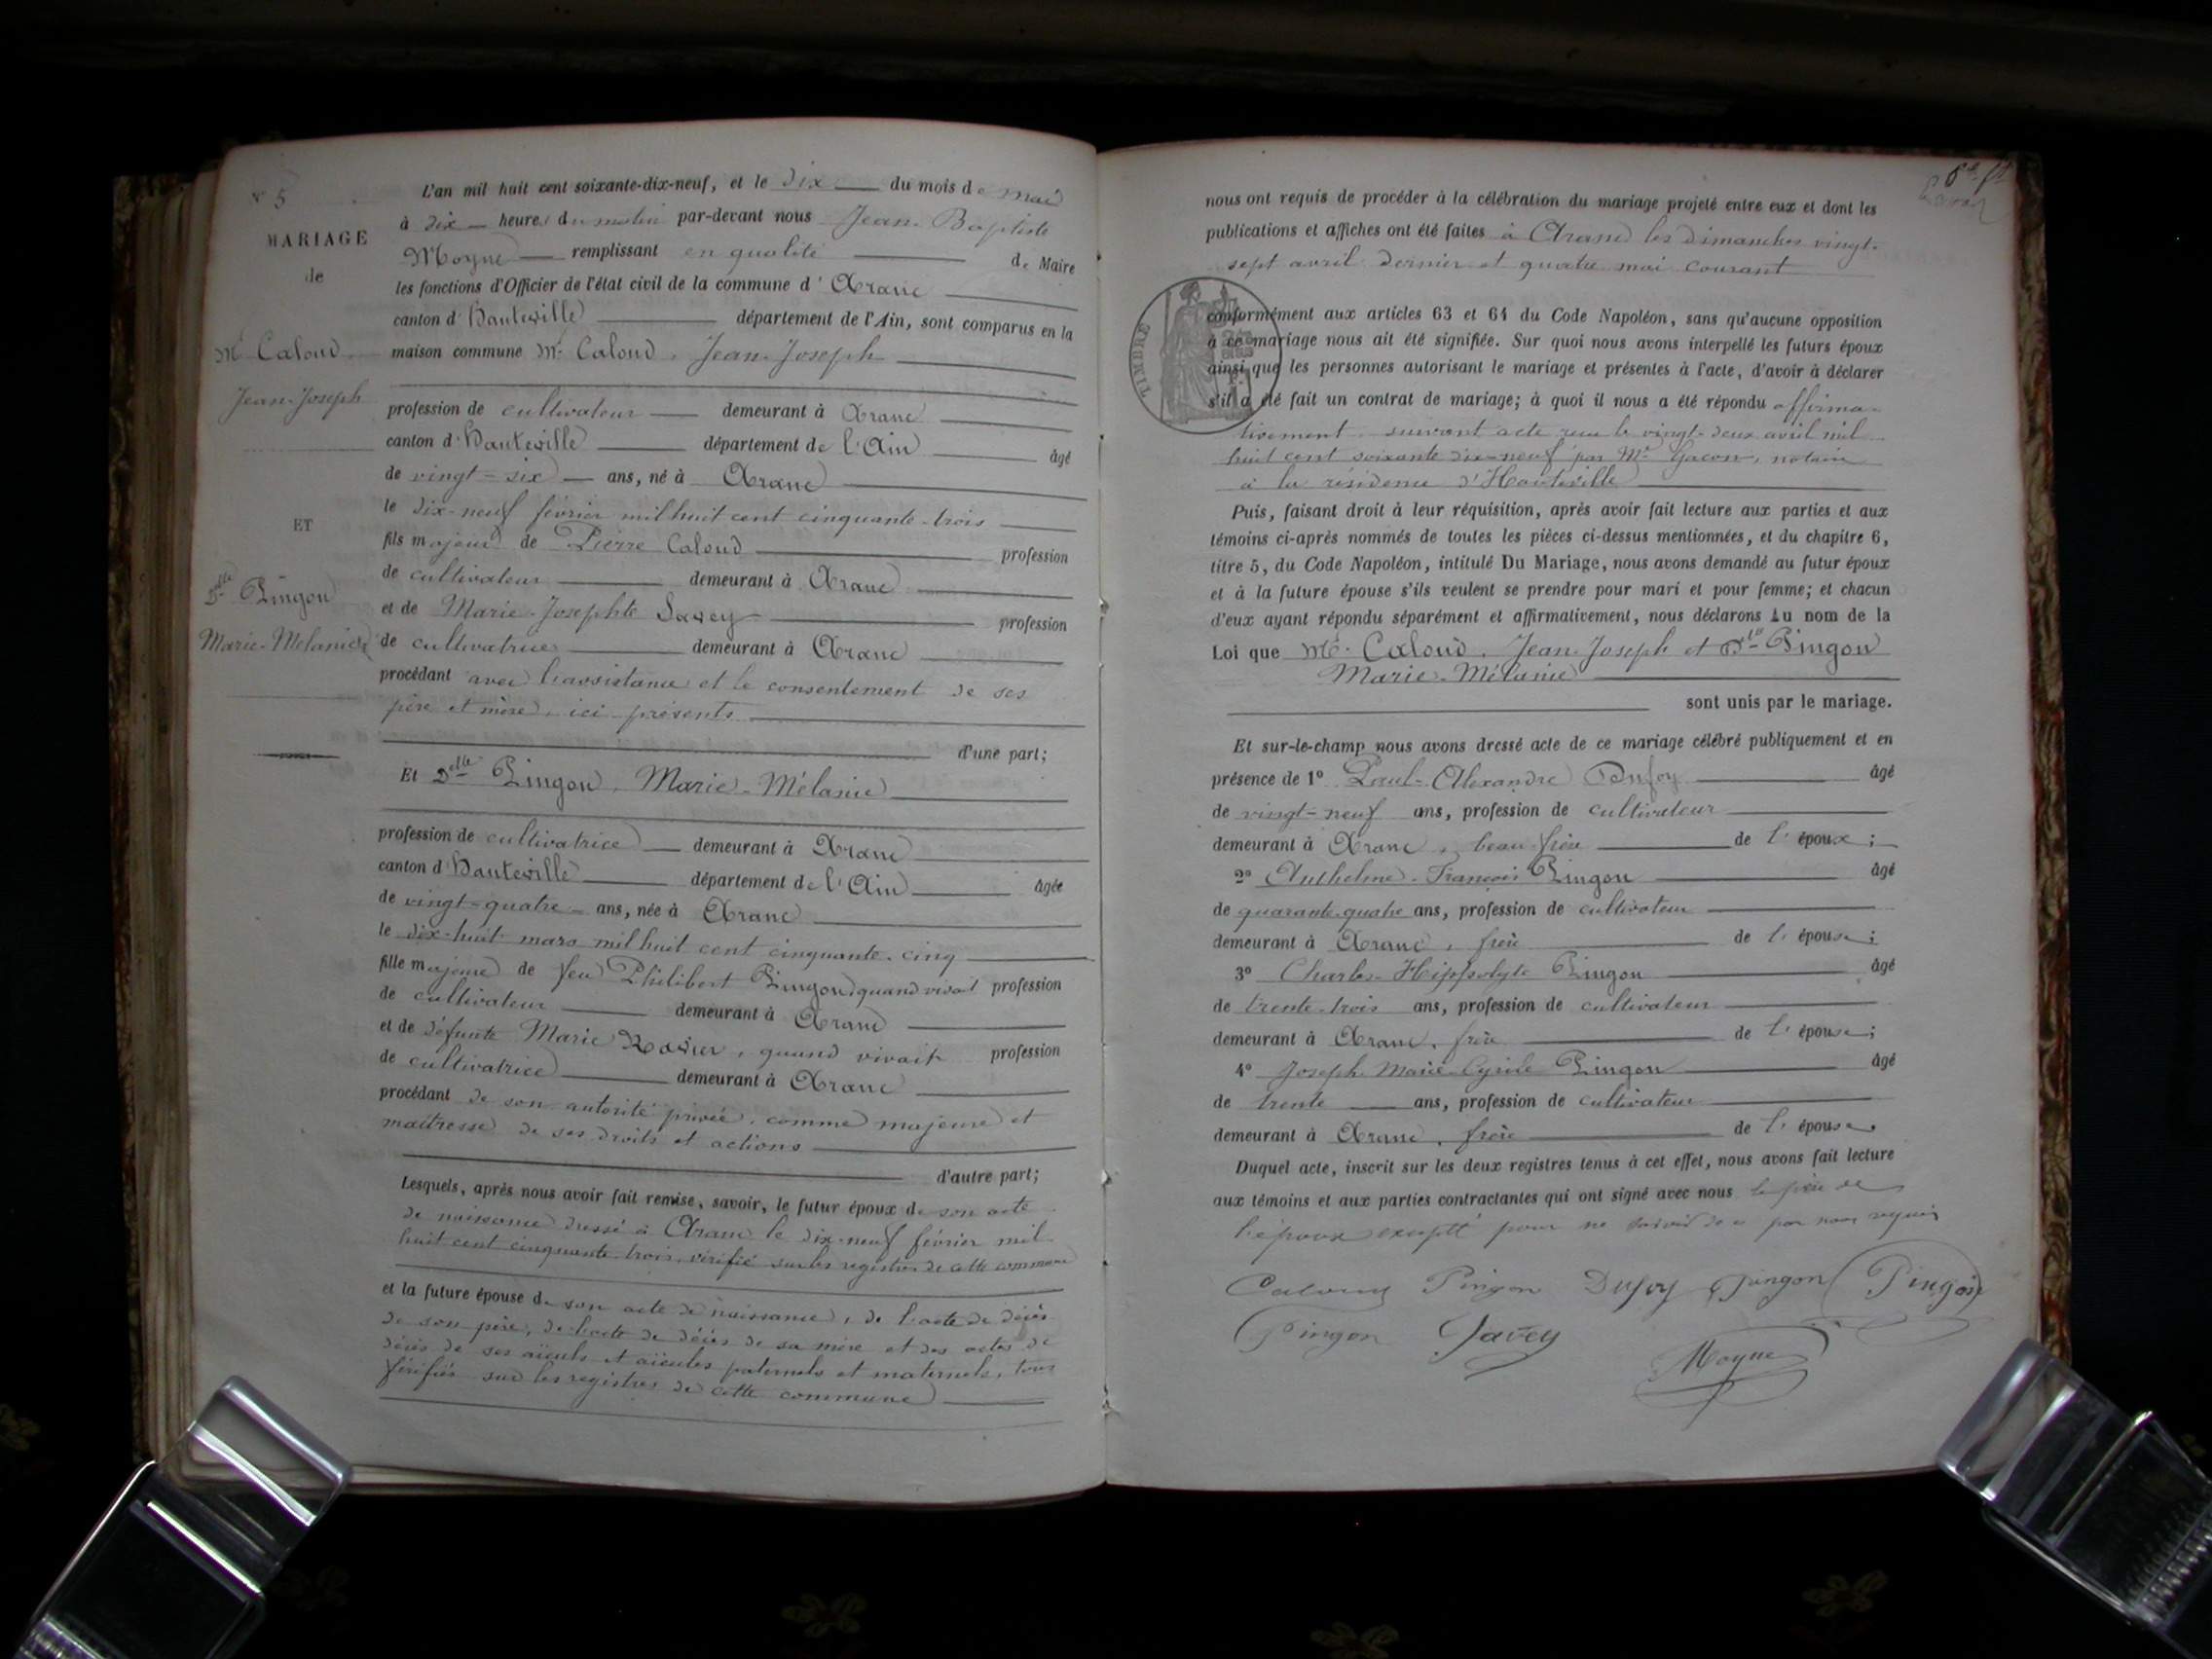 N° 5
MARIAGE
de
Mr Caloud
Jean-Joseph
ET
Dlle Pingon
Marie-Mélanie
L'an mil huit cent soixante-dix-neuf, et le dix du mois de mai
à dix heures du matin par-devant nous Jean-Baptiste
Moyne remplissant en qualité de Maire
les fonctions d'Officier de l'état civil de la commune d'Aranc
canton d'Hauteville département de l'Ain, sont comparus en la
maison commune Mr Caloud, Jean-Joseph
profession de cultivateur demeurant à Aranc
canton d'Hauteville département de l'Ain âgé
de vingt-six ans, né à Aranc
le dix-neuf février mil huit cent cinquante-trois
fils majeur de Pierre Caloud profession
de cultivateur demeurant à Aranc
et de Marie-Josephte Savey profession
de cultivatrice demeurant à Aranc
procédant avec l'assistance et le consentement de ses
père et mère, ici présents
d'une part;
Et Dlle Pingon, Marie-Mélanie
profession de cultivatrice demeurant à Aranc
canton d'Hauteville département de l'Ain âgée
de vingt-quatre ans, née à Aranc
le dix-huit mars mil huit cent cinquante-cinq
fille majeure de feu Philibert Pingon, quand vivait profession
de cultivateur demeurant à Aranc
et de défunte Marie Ravier, quand vivait profession
de cultivatrice demeurant à Aranc
procédant de son autorité privée, comme majeure et
maîtresse de ses droits et actions
d'autre part;
Lesquels, après nous avoir fait remise, savoir, le futur époux de son acte
de naissance dressé à Aranc le dix-neuf février mil
huit cent cinquante trois, vérifié sur les registres de cette commune
et la future épouse de son acte de naissance, de l'acte de décès
de son père, de l'acte de décès de sa mère et des actes de
décès de ses aïeuls et aïeules paternels et maternels, tous
vérifiés sur les registres de cette commune
nous ont requis de procéder à la célébration du mariage projeté entre eux et dont les
publications et affiches ont été faites à Aranc les dimanches vingt-
sept avril dernier et quatre mai courant
TIMBRE
conformément aux articles 63 et 64 du Code Napoléon, sans qu'aucune opposition
à ce mariage nous ait été signifiée. Sur quoi nous avons interpellé les futurs époux
ainsi que les personnes autorisant le mariage et présentes à l'acte, d'avoir à déclarer
s'il a été fait un contrat de mariage; à quoi il nous a été répondu affirma-
tivement, suivant acte reçu le vingt-deux avril mil
huit cent soixante dix-neuf par Me Gacon, notaire
à la résidence d'Hauteville
Puis, faisant droit à leur réquisition, après avoir fait lecture aux parties et aux
témoins ci-après nommés de toutes les pièces ci-dessus mentionnées, et du chapitre 6,
titre 5, du Code Napoléon, intitulé Du Mariage, nous avons demandé au futur époux
et à la future épouse s'ils veulent se prendre pour mari et pour femme; et chacun
d'eux ayant répondu séparément et affirmativement, nous déclarons Au nom de la
Loi que Mr Caloud, Jean-Joseph et Dlle Pingon
Marie-Mélanie
sont unis par le mariage.
Et sur-le-champ nous avons dressé acte de ce mariage célébré publiquement et en
présence de 1° Paul-Alexandre Dufoy âgé
de vingt-neuf ans, profession de cultivateur
demeurant à Aranc, beau-frère de l'époux;
2° Anthelme-François Pingon âgé
de quarante-quatre ans, profession de cultivateur
demeurant à Aranc, frère de l'épouse;
3° Charles-Hippolyte Pingon âgé
de trente-trois ans, profession de cultivateur
demeurant à Aranc, frère de l'épouse;
4° Joseph-Marie-Cyrile Pingon âgé
de trente ans, profession de cultivateur
demeurant à Aranc, frère de l'épouse.
Duquel acte, inscrit sur les deux registres tenus à cet effet, nous avons fait lecture
aux témoins et aux parties contractantes qui ont signé avec nous le père de
l'époux excepté pour ne savoir de ce par nous requis
Caloud Pingon Dufoy Pingon Pingon
Pingon Savey
Moyne